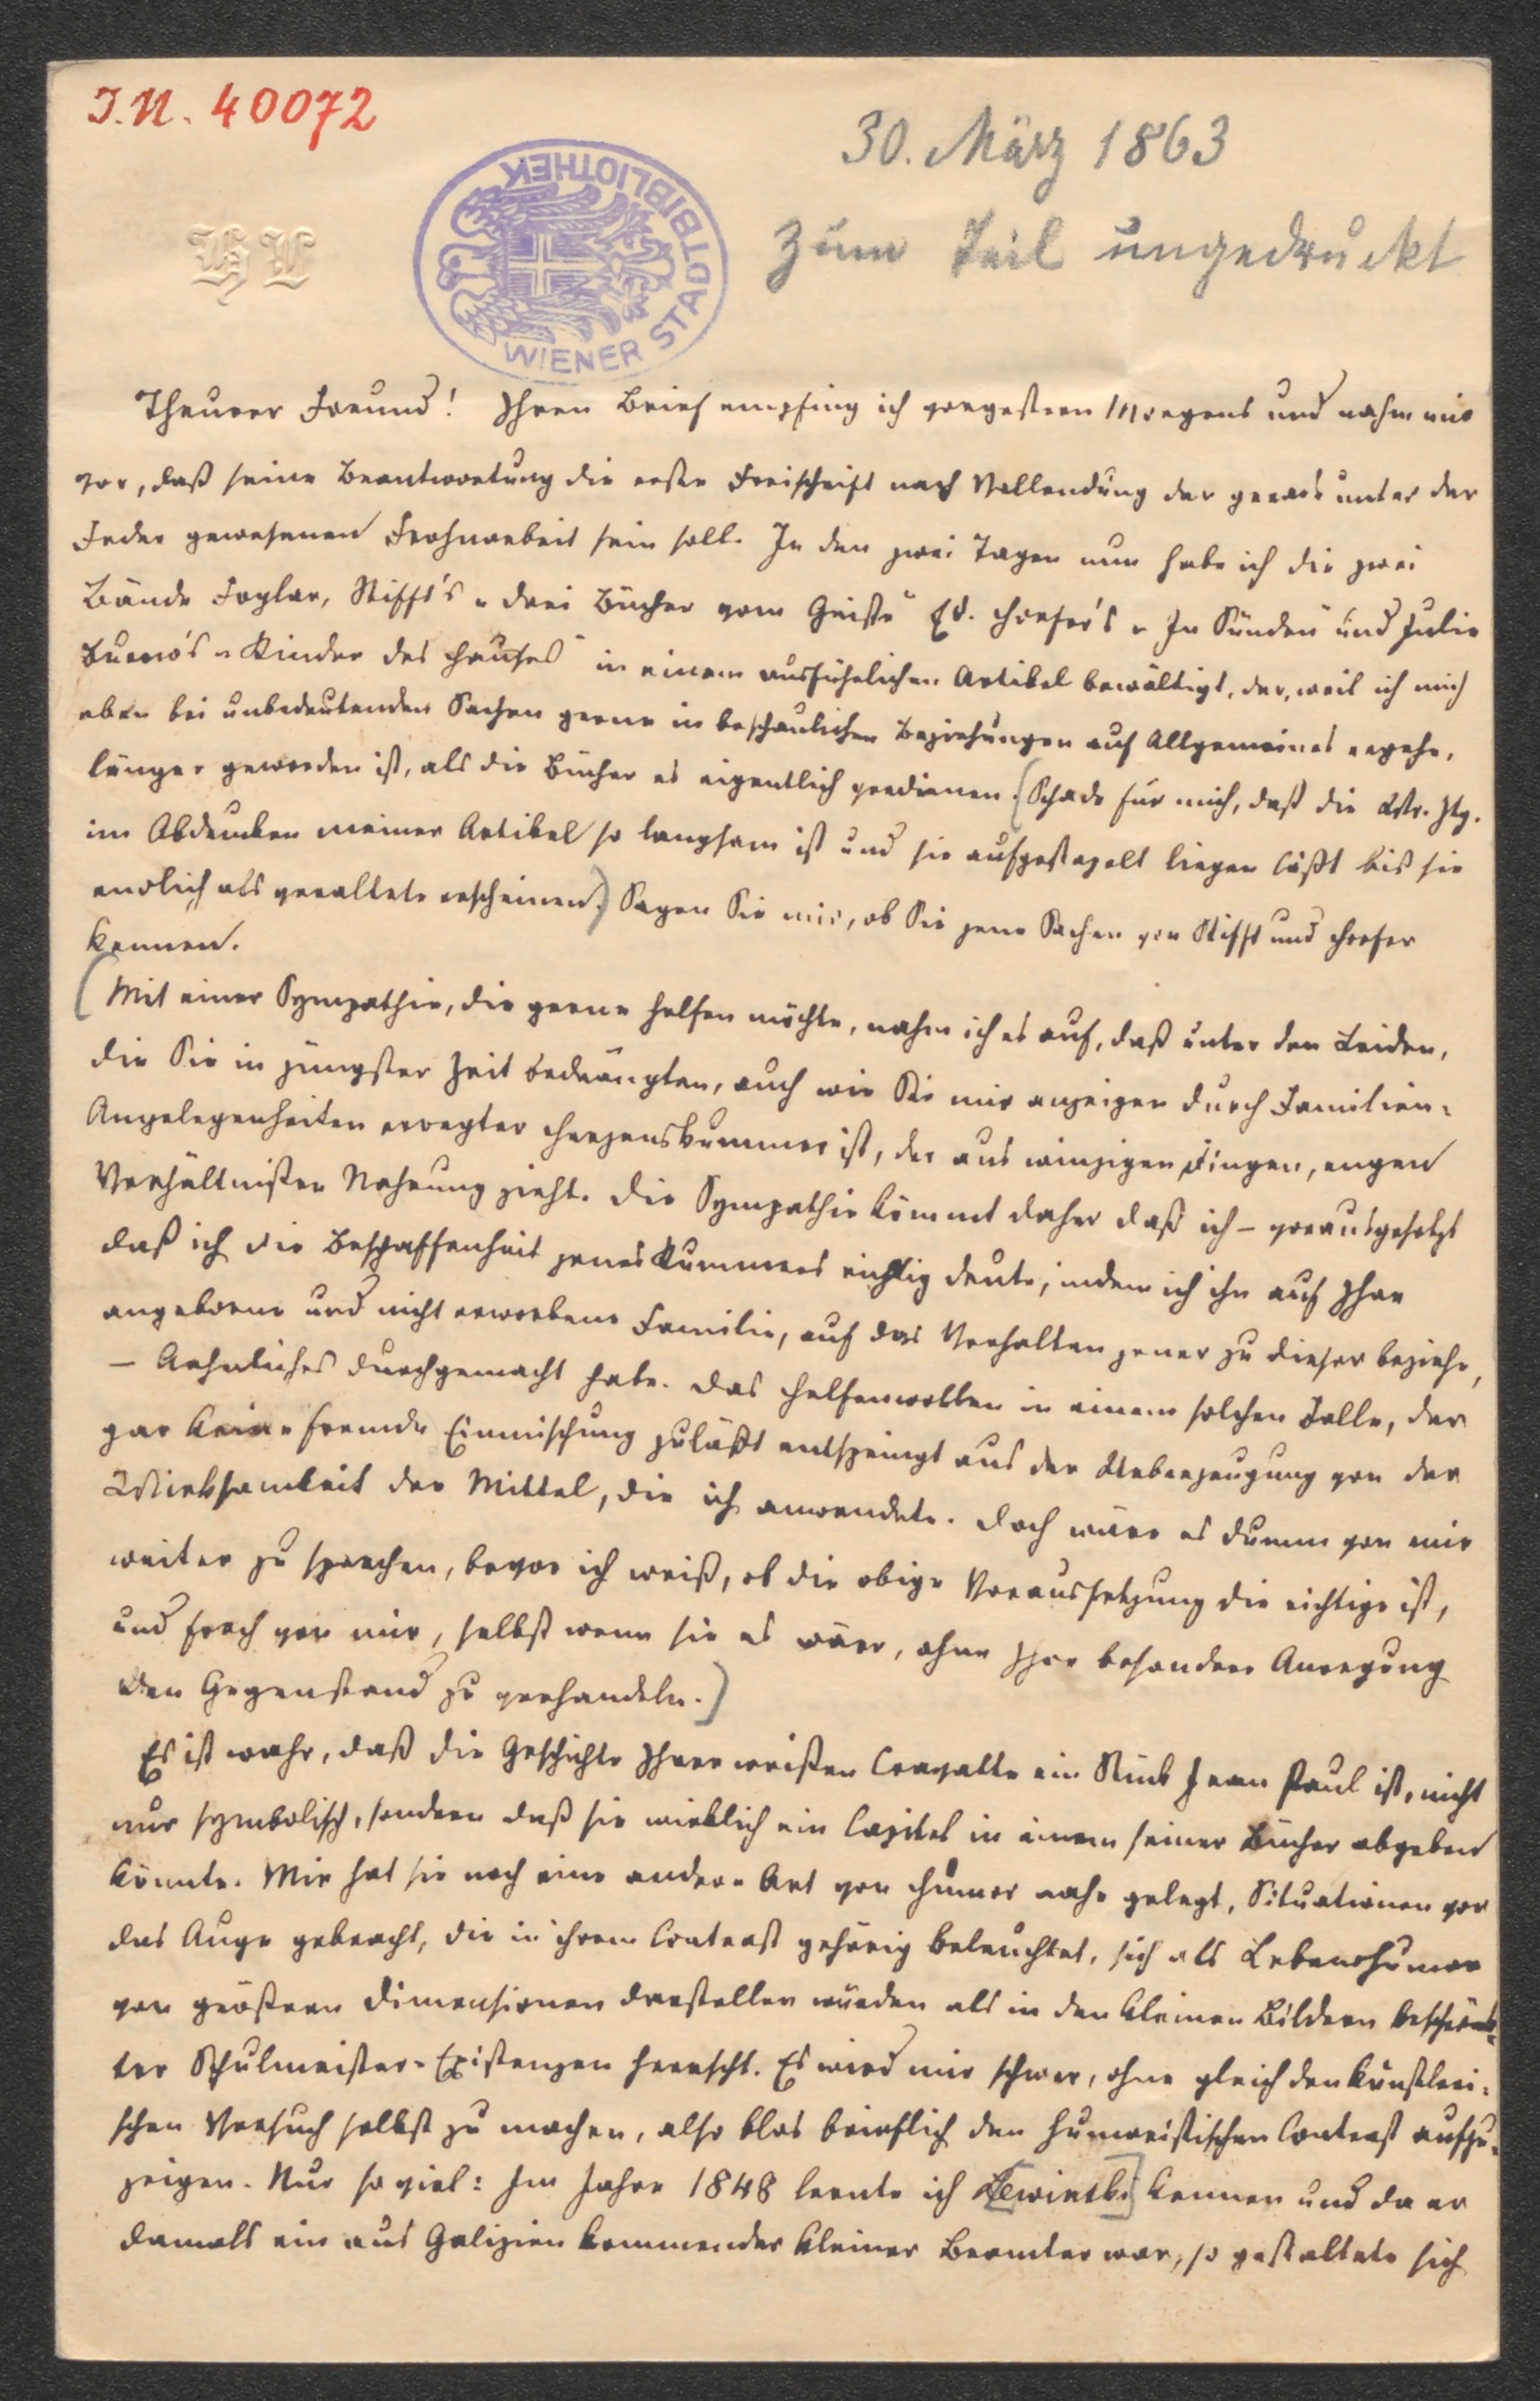 I.N. 40072
30. März 1863
WIENER STADTBIBLIOTHEK
zum Teil ungedruckt
HL
Theurer Freund! Ihren Brief empfing ich vorgestern Morgens und nahm mir
vor, daß seine Beantwortung die erste Freischrift nach Vollendung der gerade unter der
Feder gewesenen Frohnarbeit sein soll. In den zwei Tagen nun habe ich die zwei
Bände Foglar, Stifft's „drei Bücher vom Geiste" Ed. Hoefer's „In Sünden" und Julie
Burow's „Kinder des Hauses" in einem ausführlichen Artikel bewältigt, der, weil ich mich
eben bei unbedeutenden Sachen gerne in beschaulichen Beziehungen auf Allgemeines ergehe,
länger geworden ist, als die Bücher es eigentlich verdienen. (Schade für mich, daß die Wr. Ztg.
im Abdrucken meiner Artikel so langsam ist und sie aufgestapelt liegen läßt bis sie
endlich als veraltete erscheinen.) Sagen Sie mir, ob Sie jene Sachen von Stifft und Hoefer
kennen.
(Mit einer Sympathie, die gerne helfen möchte, nahm ich es auf, daß unter den Leiden,
die Sie in jüngster Zeit bedrängten, auch wie Sie mir anzeigen durch Familien-
Angelegenheiten erregter Herzenskummer ist, der aus winzigen Dingen, engen
Verhältnißen Nahrung zieht. Die Sympathie kömmt daher daß ich – vorausgesetzt
daß ich die Beschaffenheit jenes Kummers richtig deute, indem ich ihn auf Ihre
angeborne und nicht erworbene Familie, auf das Verhalten jener zu dieser beziehe,
– Aehnliches durchgemacht habe. Das Helfenwollen in einem solchen Falle, der
gar keine fremde Einmischung zuläßt entspringt aus der Ueberzeugung von der
Wirksamkeit der Mittel, die ich anwendete. Doch wäre es dumm von mir
weiter zu sprechen, bevor ich weiß, ob die obige Voraussetzung die richtige ist,
und frech von mir, selbst wenn sie es wäre, ohne Ihre besondere Anregung
den Gegenstand zu verhandeln.)
Es ist wahr, daß die Geschichte Ihrer weißen Cravatte ein Stück Jean Paul ist, nicht
nur symbolisch, sondern daß sie wirklich ein Capitel in einem seiner Bücher abgeben
könnte. Mir hat sie noch eine andere Art von Humor nahe gelegt, Situationen vor
das Auge gebracht, die in ihrem Contrast gehörig beleuchtet, sich als Lebenshumor
von größeren Dimensionen darstellen würden als in den kleinen Bildern beschränk-
ter Schulmeister-Existenzen herrscht. Es wird mir schwer, ohne gleich den künstleri-
schen Versuch selbst zu machen, also blos brieflich den humoristischen Contrast aufzu-
zeigen. Nur so viel: Im Jahre 1848 lernte ich [Lewinski] kennen und da er
damals ein aus Galizien kommender kleiner Beamter war, so gestaltete sich